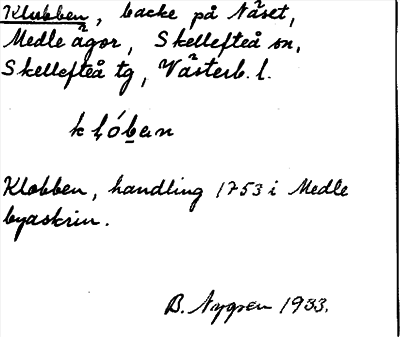 Klubben, backe på Näset,
Medle ägor, Skellefteå sn,
Skellefteå tg, Västerb. l.
kḷóḇan
Klobben, handling 1753 i Medle
byaskrin.
B. Nygren 1933.